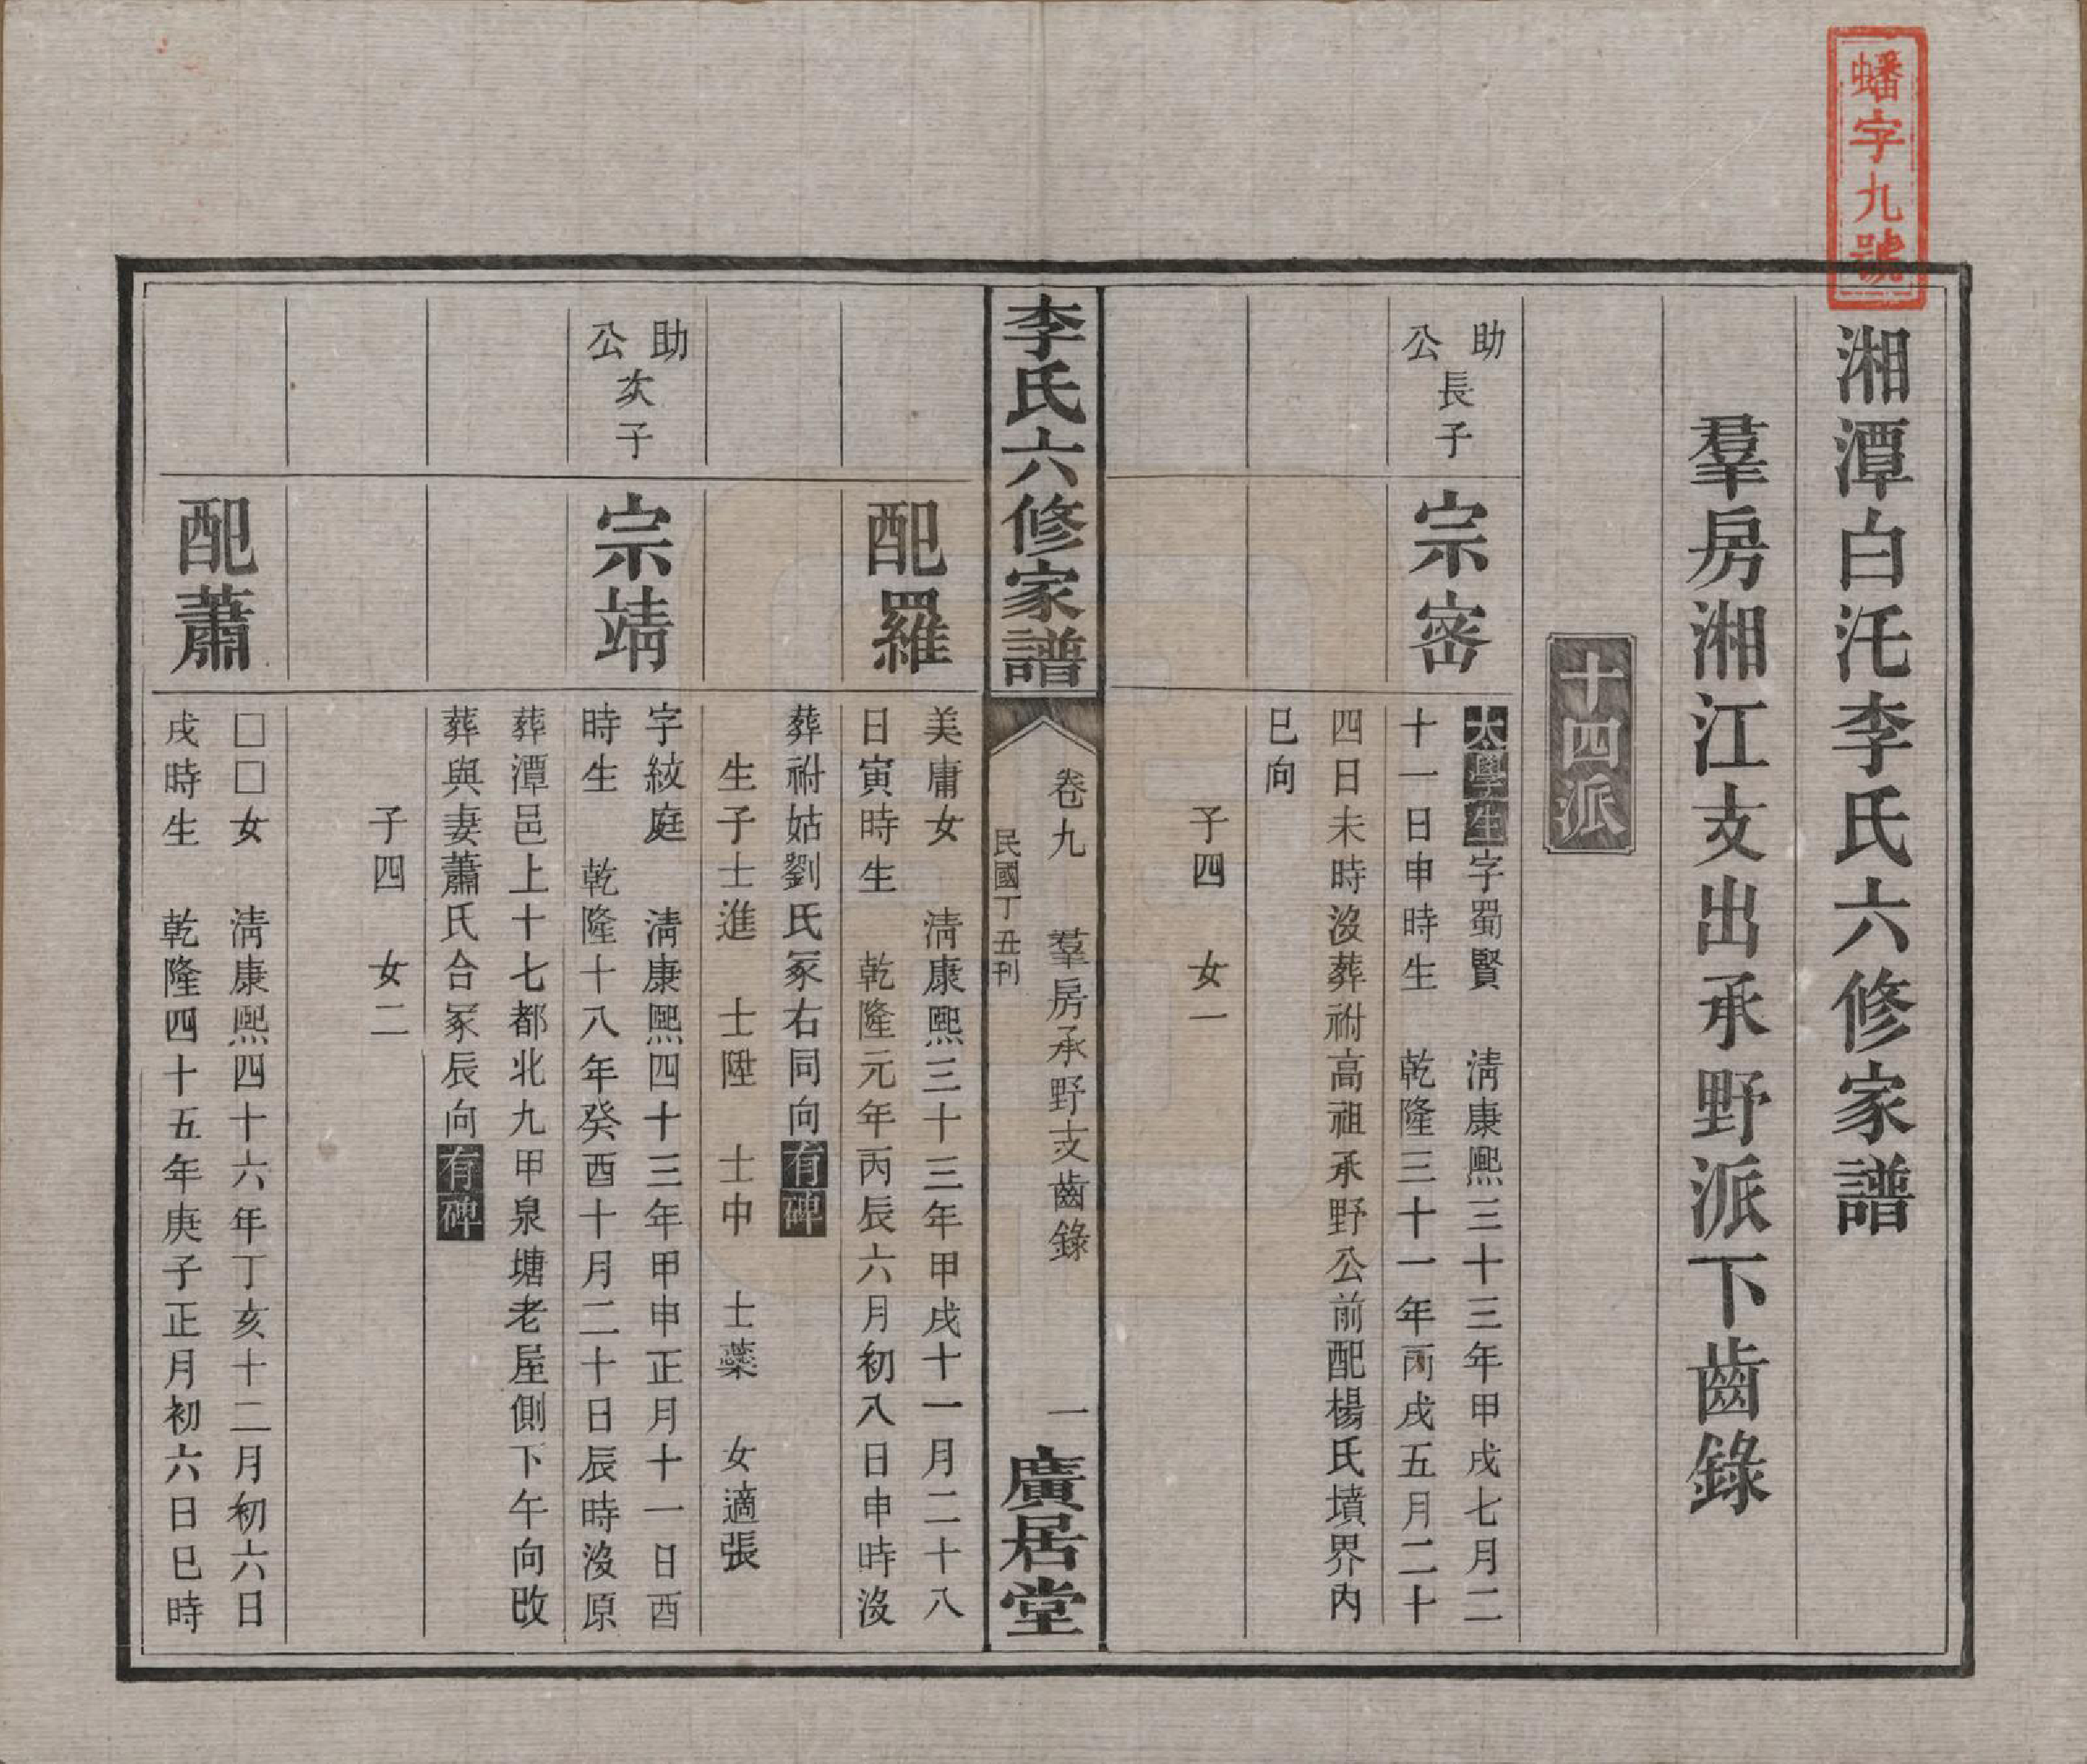 蟠字九號
湘潭白汑李氏六修家譜
羣房湘江支出承野派下齒錄
十四派
助公長子
宗密
太學生字蜀賢 淸康熙三十三年甲戌七月二
十一日申時生 乾隆三十一年丙戌五月二十
四日未時沒葬祔高祖承野公前配楊氏墳界內
巳向
子四 女一
李氏六修家譜
卷九 羣房承野支齒錄 一
民國丁丑刊
廣居堂
配羅
美庸女 淸康熙三十三年甲戌十一月二十八
日寅時生 乾隆元年丙辰六月初八日申時沒
葬祔姑劉氏冢右同向有碑
生子士進 士陞 士中 士藥 女適張
助公次子
宗靖
字紋庭 淸康熙四十三年甲申正月十一日酉
時生 乾隆十八年癸酉十月二十日辰時沒原
葬潭邑上十七都北九甲泉塘老屋側下午向改
葬與妻蕭氏合冢辰向有碑
子四 女二
配蕭
□□女 淸康熙四十六年丁亥十二月初六日
戌時生 乾隆四十五年庚子正月初六日巳時